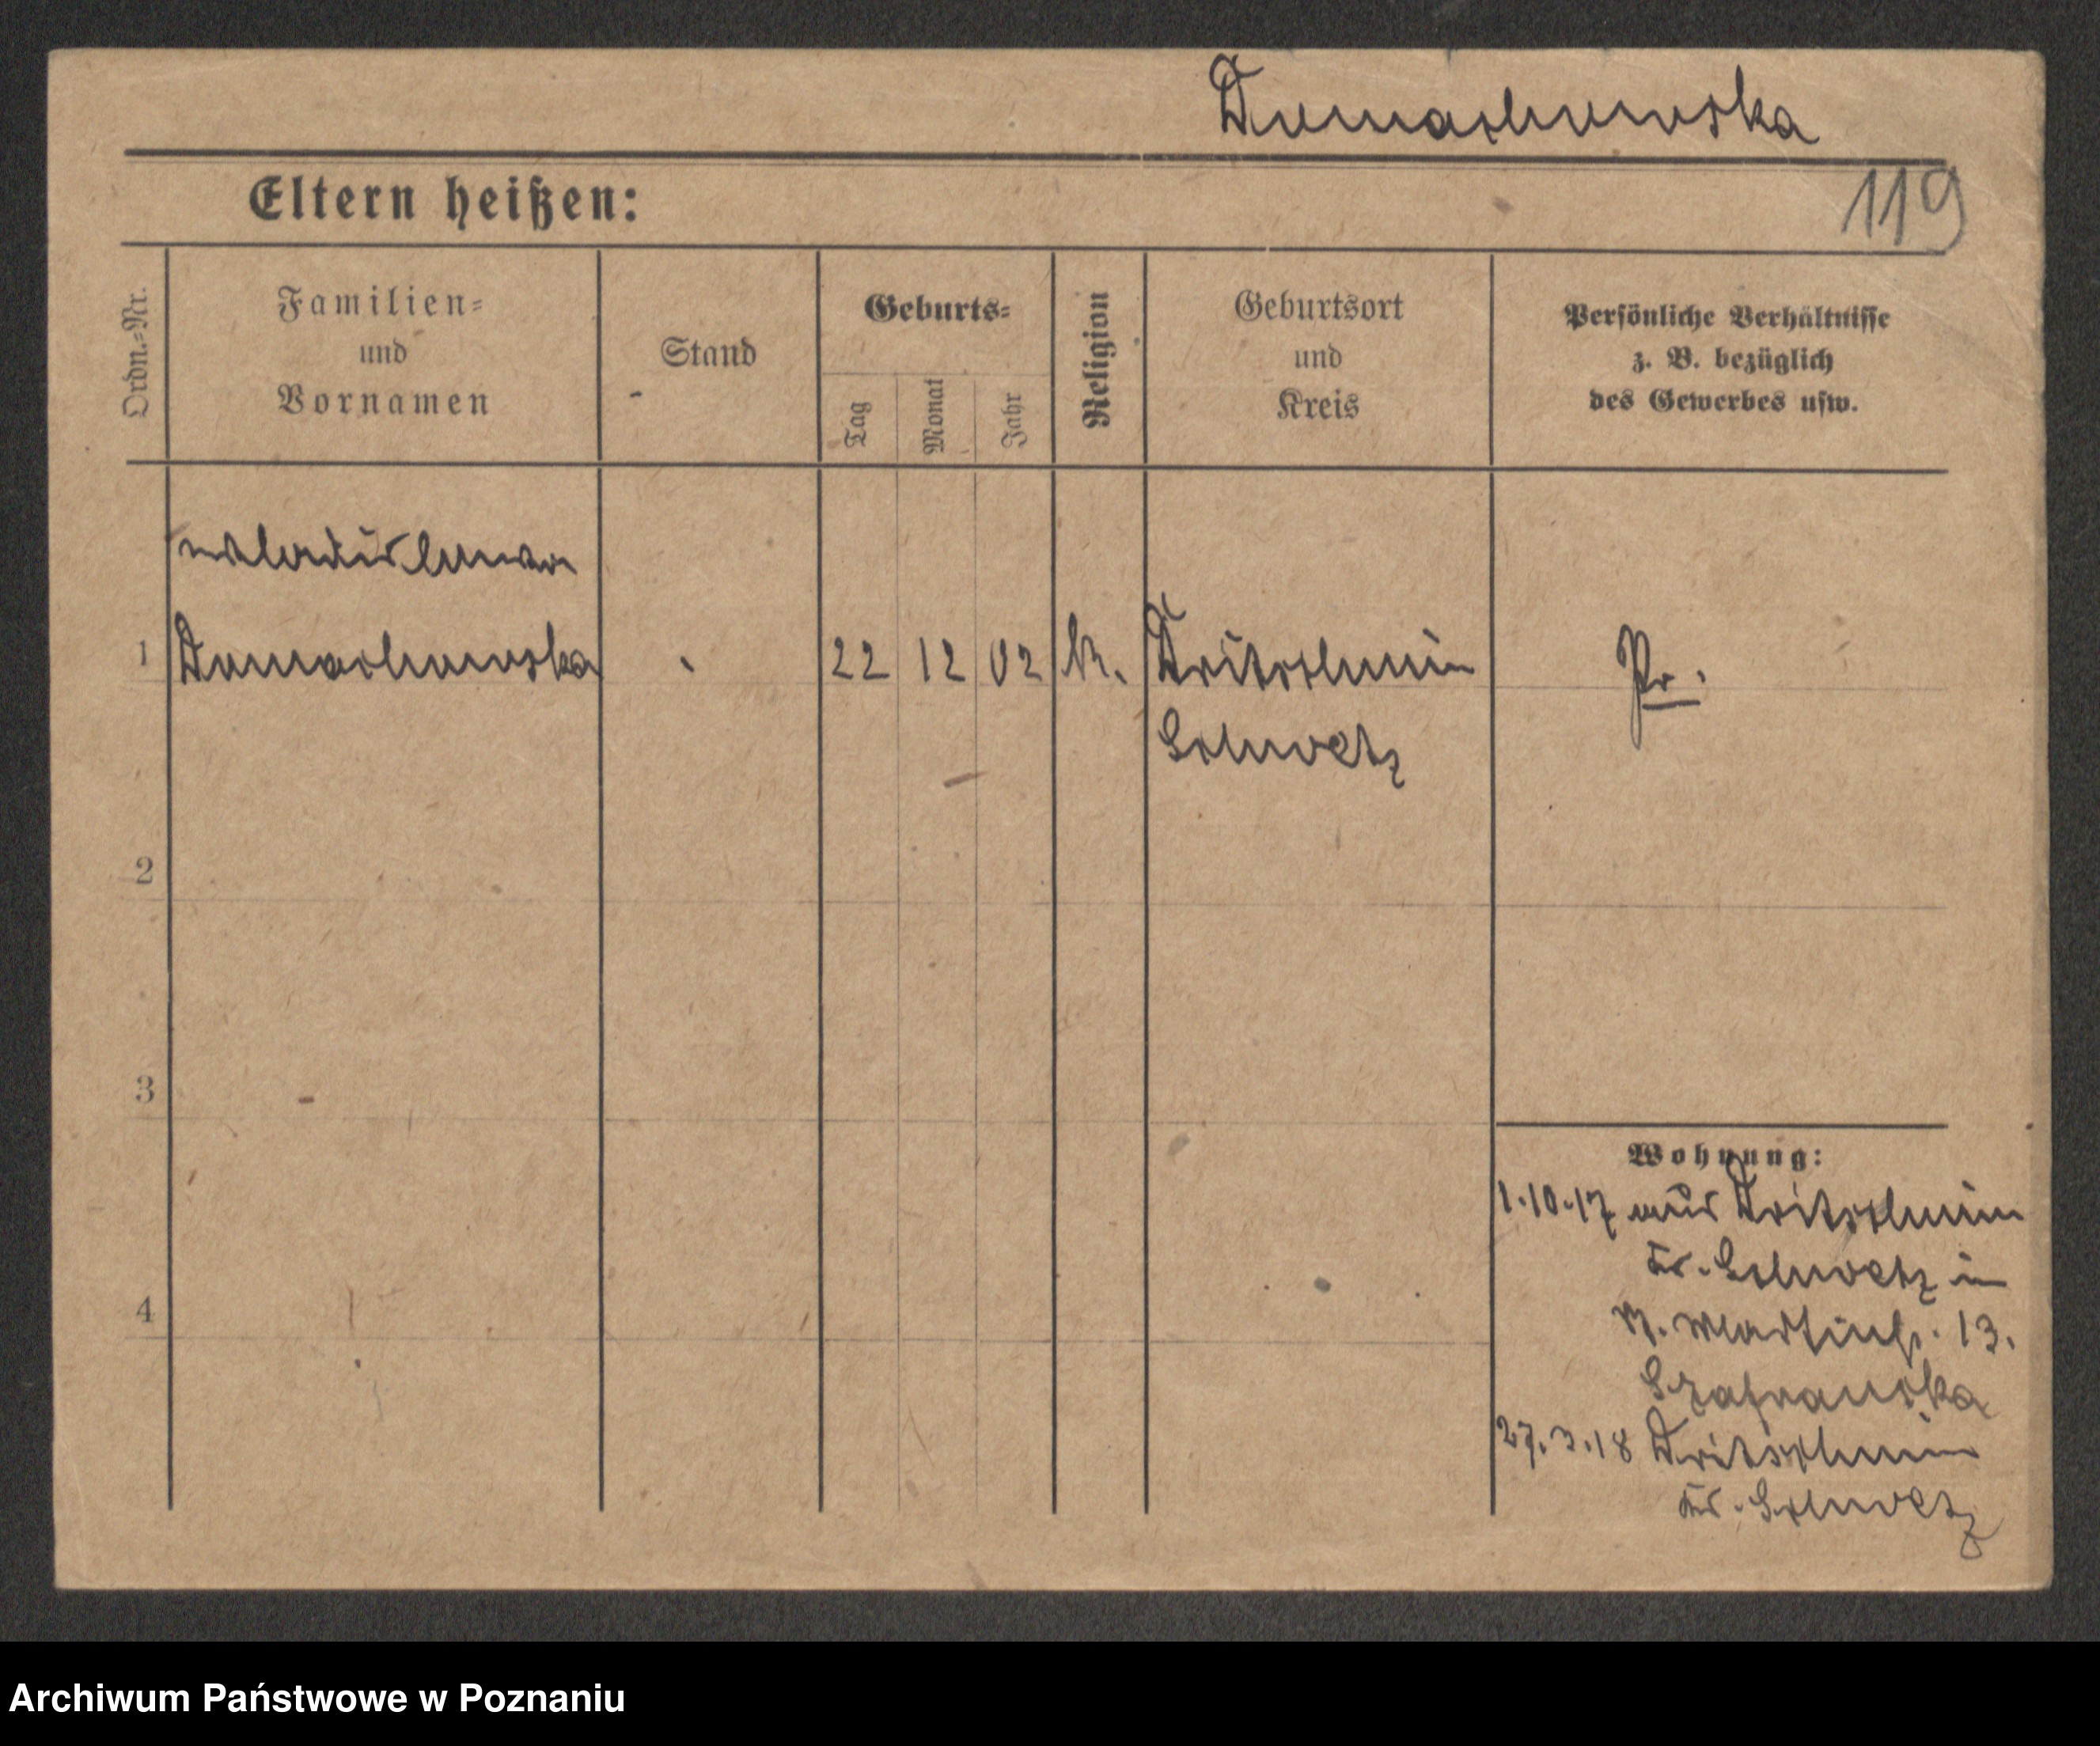 Domachowska
Eltern heißen:
119
Ordn.-Nr.
Familien-
und
Vornamen
Stand
Geburts-
Tag
Monat
Jahr
Religion
Geburtsort
und
Kreis
Persönliche Verhältnisse
z. B. bezüglich
des Gewerbes usw.
Wladislawa
1 Domachowska 22 12 02 k. Dritschmin Pr.
Schwetz
2
3
4
Wohnung:
1.10.17 aus Dritschmin
Kr. Schwetz in
Martinstr. 13.
Szafranska
27.3.18 Dritschmin
Kr. Schwetz
Archiwum Państwowe w Poznaniu